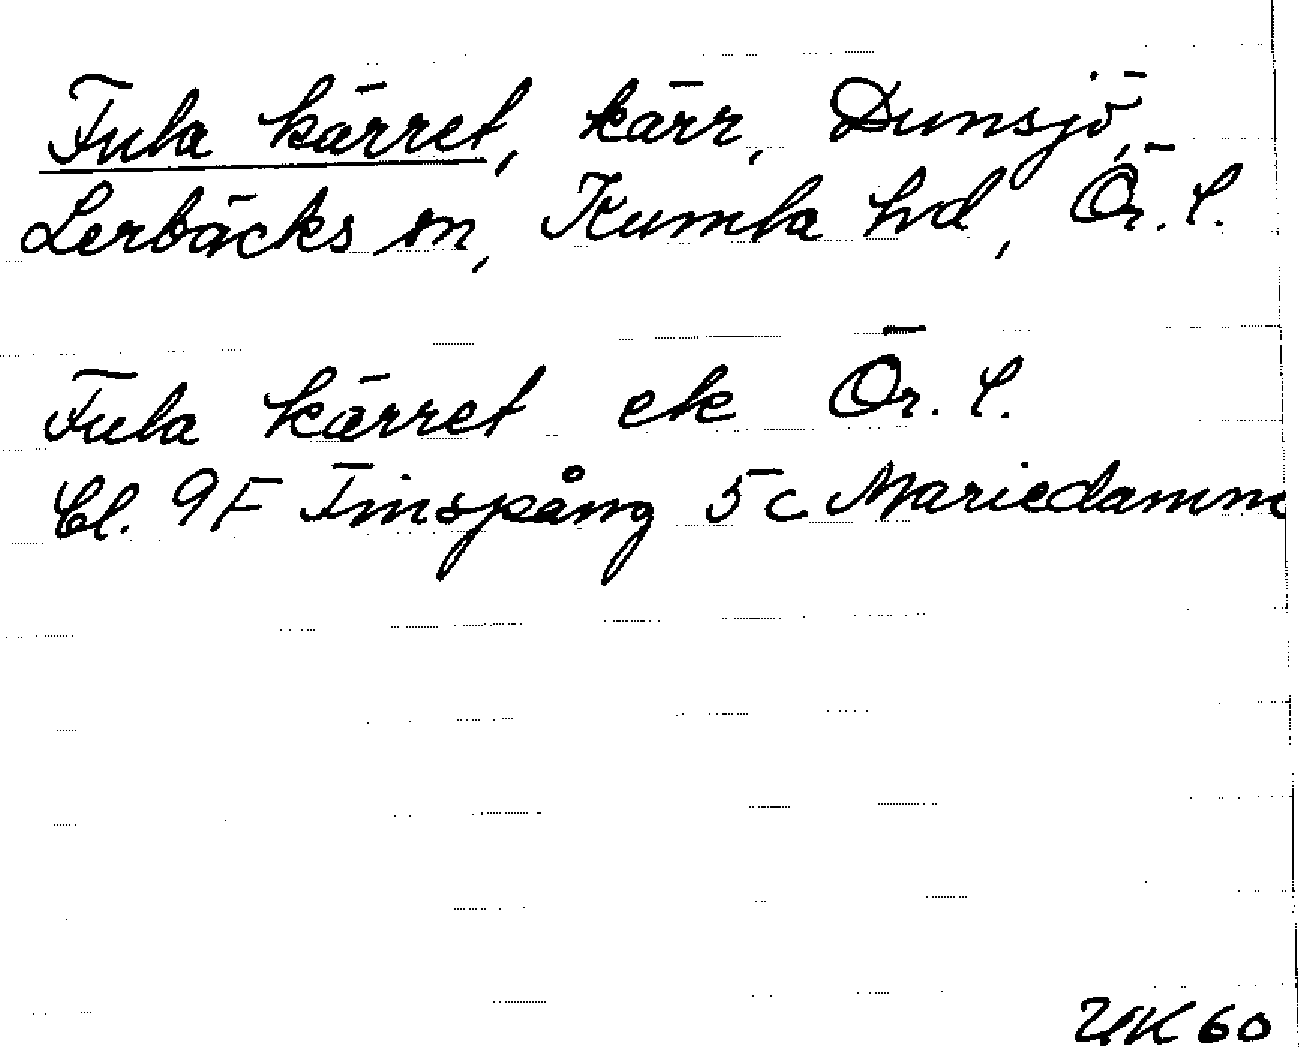 Fula kärret, kärr, Dunsjö,
Lerbäcks sn, Kumla hd, Ör. l.
Fula kärret ek Ör. l.
Bl. 9F Finspång 5c Mariedamm
UK 60